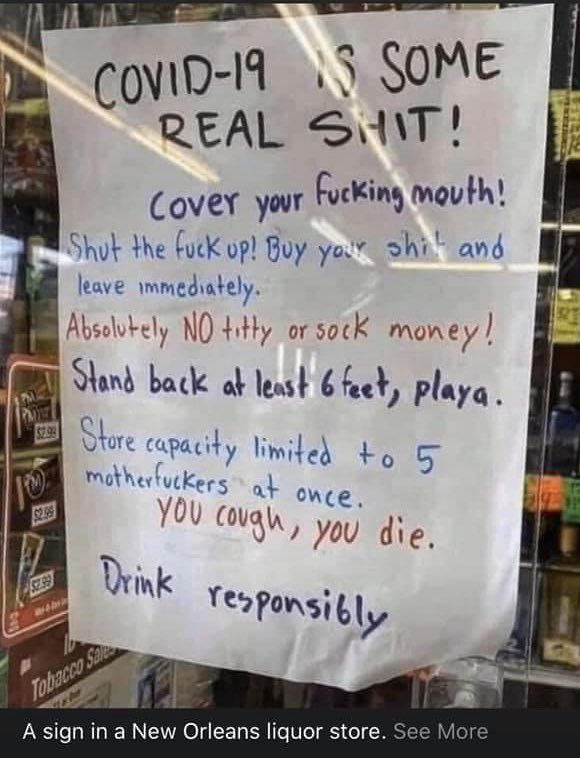 COVID-19 IS SOME
REAL SHIT!
Cover your fucking mouth!
Shut the fuck up! Buy your shit and
leave immediately.
Absolutely NO titty or sock money!
Stand back at least 6 feet, playa.
Store capacity limited to 5
motherfuckers at once.
YOU cough, you die.
Drink responsibly
$2.99
$2.99
$2.99
Tobacco Sales
A sign in a New Orleans liquor store. See More